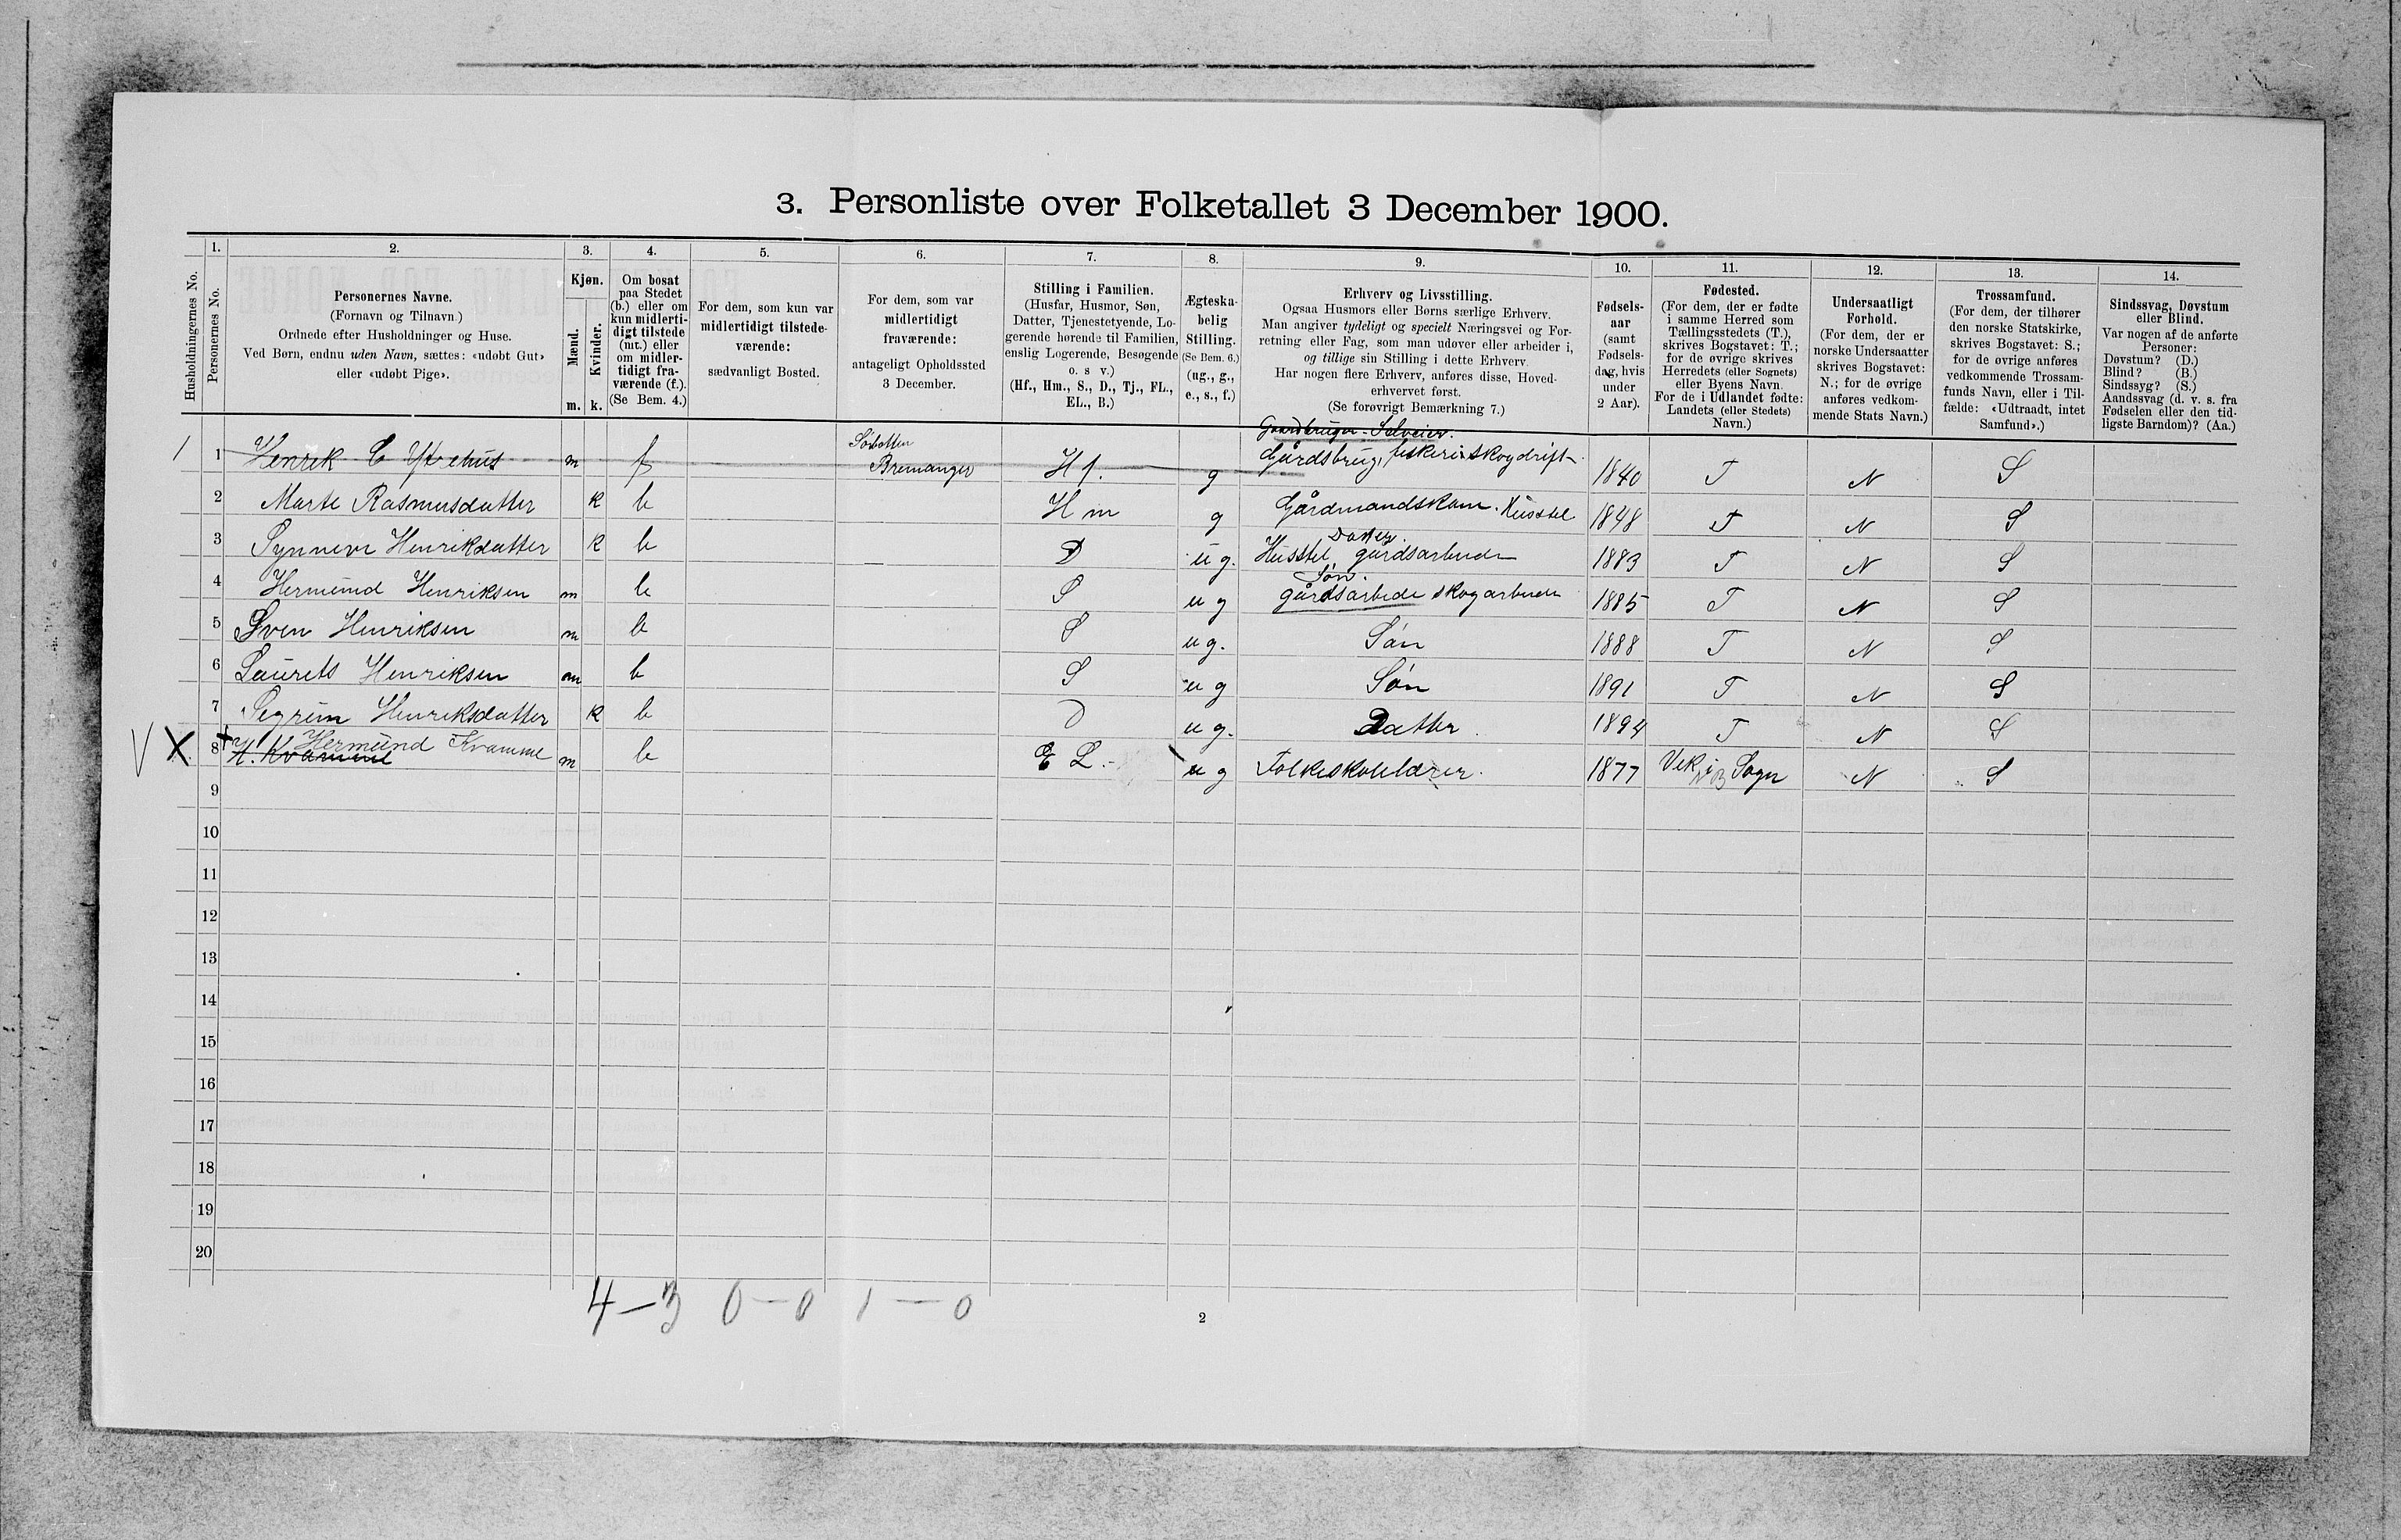 3. Personliste over Folketallet 3 December 1900.
Husholdningernes No.
1.
Personernes No.
2.
Personernes Navne.
(Fornavn og Tilnavn.)
Ordnede efter Husholdninger og Huse.
Ved Børn, endnu uden Navn, sættes: «udøbt Gut»
eller «udøbt Pige».
3.
Kjøn.
Mænd.
m.
Kvinder.
k.
4.
Om bosat
paa Stedet
(b.) eller om
kun midlerti-
digt tilstede
(mt.) eller
om midler-
tidigt fra-
værende (f.).
(Se Bem. 4.)
5.
For dem, som kun var
midlertidigt tilstede-
værende:
sædvanligt Bosted.
6.
For dem, som var
midlertidigt
fraværende:
antageligt Opholdssted
3 December.
7.
Stilling i Familien.
(Husfar, Husmor, Søn,
Datter, Tjenestetyende, Lo-
gerende hørende til Familien,
enslig Logerende, Besøgende
o. s v.)
(Hf., Hm., S., D., Tj., FL.,
EL., B.)
8.
Ægteska-
belig
Stilling.
(Se Bem. 6.)
(ug., g.,
e., s., f.)
9.
Erhverv og Livsstilling.
Ogsaa Husmors eller Børns særlige Erhverv.
Man angiver tydeligt og specielt Næringsvei og For-
retning eller Fag, som man udøver eller arbeider i,
og tillige sin Stilling i dette Erhverv.
Har nogen flere Erhverv, anføres disse, Hoved-
erhvervet først.
(Se forøvrigt Bemærkning 7.)
10.
Fødsels-
aar
(samt
Fødsels-
dag, hvis
under
2 Aar).
11.
Fødested.
(For dem, der er fødte
i samme Herred som
Tællingsstedets (T.),
skrives Bogstavet: T.;
for de øvrige skrives
Herredets (eller Sognets)
eller Byens Navn.
For de i Udlandet fødte:
Landets (eller Stedets)
Navn.)
12.
Undersaatligt
Forhold.
(For dem, der er
norske Undersaatter
skrives Bogstavet:
N.; for de øvrige
anføres vedkom-
mende Stats Navn.)
13.
Trossamfund.
(For dem, der tilhører
den norske Statskirke,
skrives Bogstavet: S.;
for de øvrige anføres
vedkommende Trossam-
funds Navn, eller i Til-
fælde: «Udtraadt, intet
Samfund».)
14.
Sindssvag, Døvstum
eller Blind.
Var nogen af de anførte
Personer:
Døvstum? (D.)
Blind? (B.)
Sindssyg? (S.)
Aandssvag (d. v. s. fra
Fødselen eller den tid-
ligste Barndom)? (Aa.)
Gaardbruger Selveier.
1 1 Henrik C Ytrehus m f Bremanger Hf. g Gårdsbrug, fiskeri skogdrift 1840 T N S
2 Marte Rasmusdatter k b Hm g Gårdmandskone. Husstel 1848 T N S
Datter.
3 Synneve Henrikdatter k b D ug. Husstel gårdsarbeide 1883 T N S
Søn.
4 Hermund Henriksen m b S ug gårdsarbeide skogarbeide 1885 T N S
5 Sven Henriksen m b S ug. Søn 1888 T N S
6 Laurets Henriksen m b S ug Søn 1891 T N S
7 Segrim Henriksdatter k b D ug. Datter. 1894 T N S
V X 8 H. Kvamme Hermund Kvamme m b EL. ug Folkeskolelærer. 1877 Vik i Sogn N S
9
10
11
12
13
14
15
16
17
18
19
20
4 — 3 0 — 0 1 — 0
2